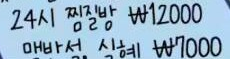 24시 찜질방 ₩12000
매바서 식혜 ₩7000